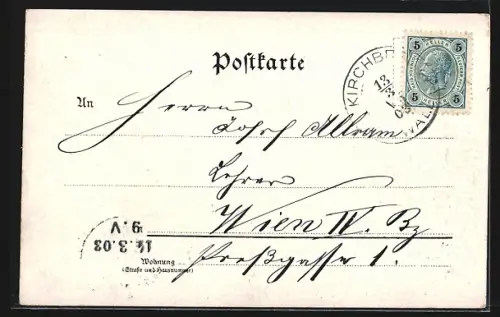 Postkarte
5 5
HELLER HELLER
5 5
KIRCHB
13
3
03
WAL
An Herrn
Josef Allram
Lehrer
Wien IV. Bz
Preßgasse 1.
14.3.03
9.V
Wohnung
(Straße und Hausnummer)